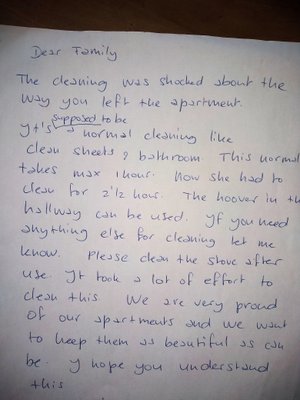 Dear Family
The cleaning was shocked about the
way you left the apartment.
supposed to be
Yt's a normal cleaning like
clean sheets & bathroom. This normal
takes max 1 hour. Now she had to
clean for 2 1/2 hour. The hoover in th
hallway can be used. Yf you need
anything else for cleaning let me
know. Please clean the stove after
use. Yt took a lot of effort to
clean this We are very proud
of our apartments and we want
to keep them as beautiful as can
be. y hope you understand
this